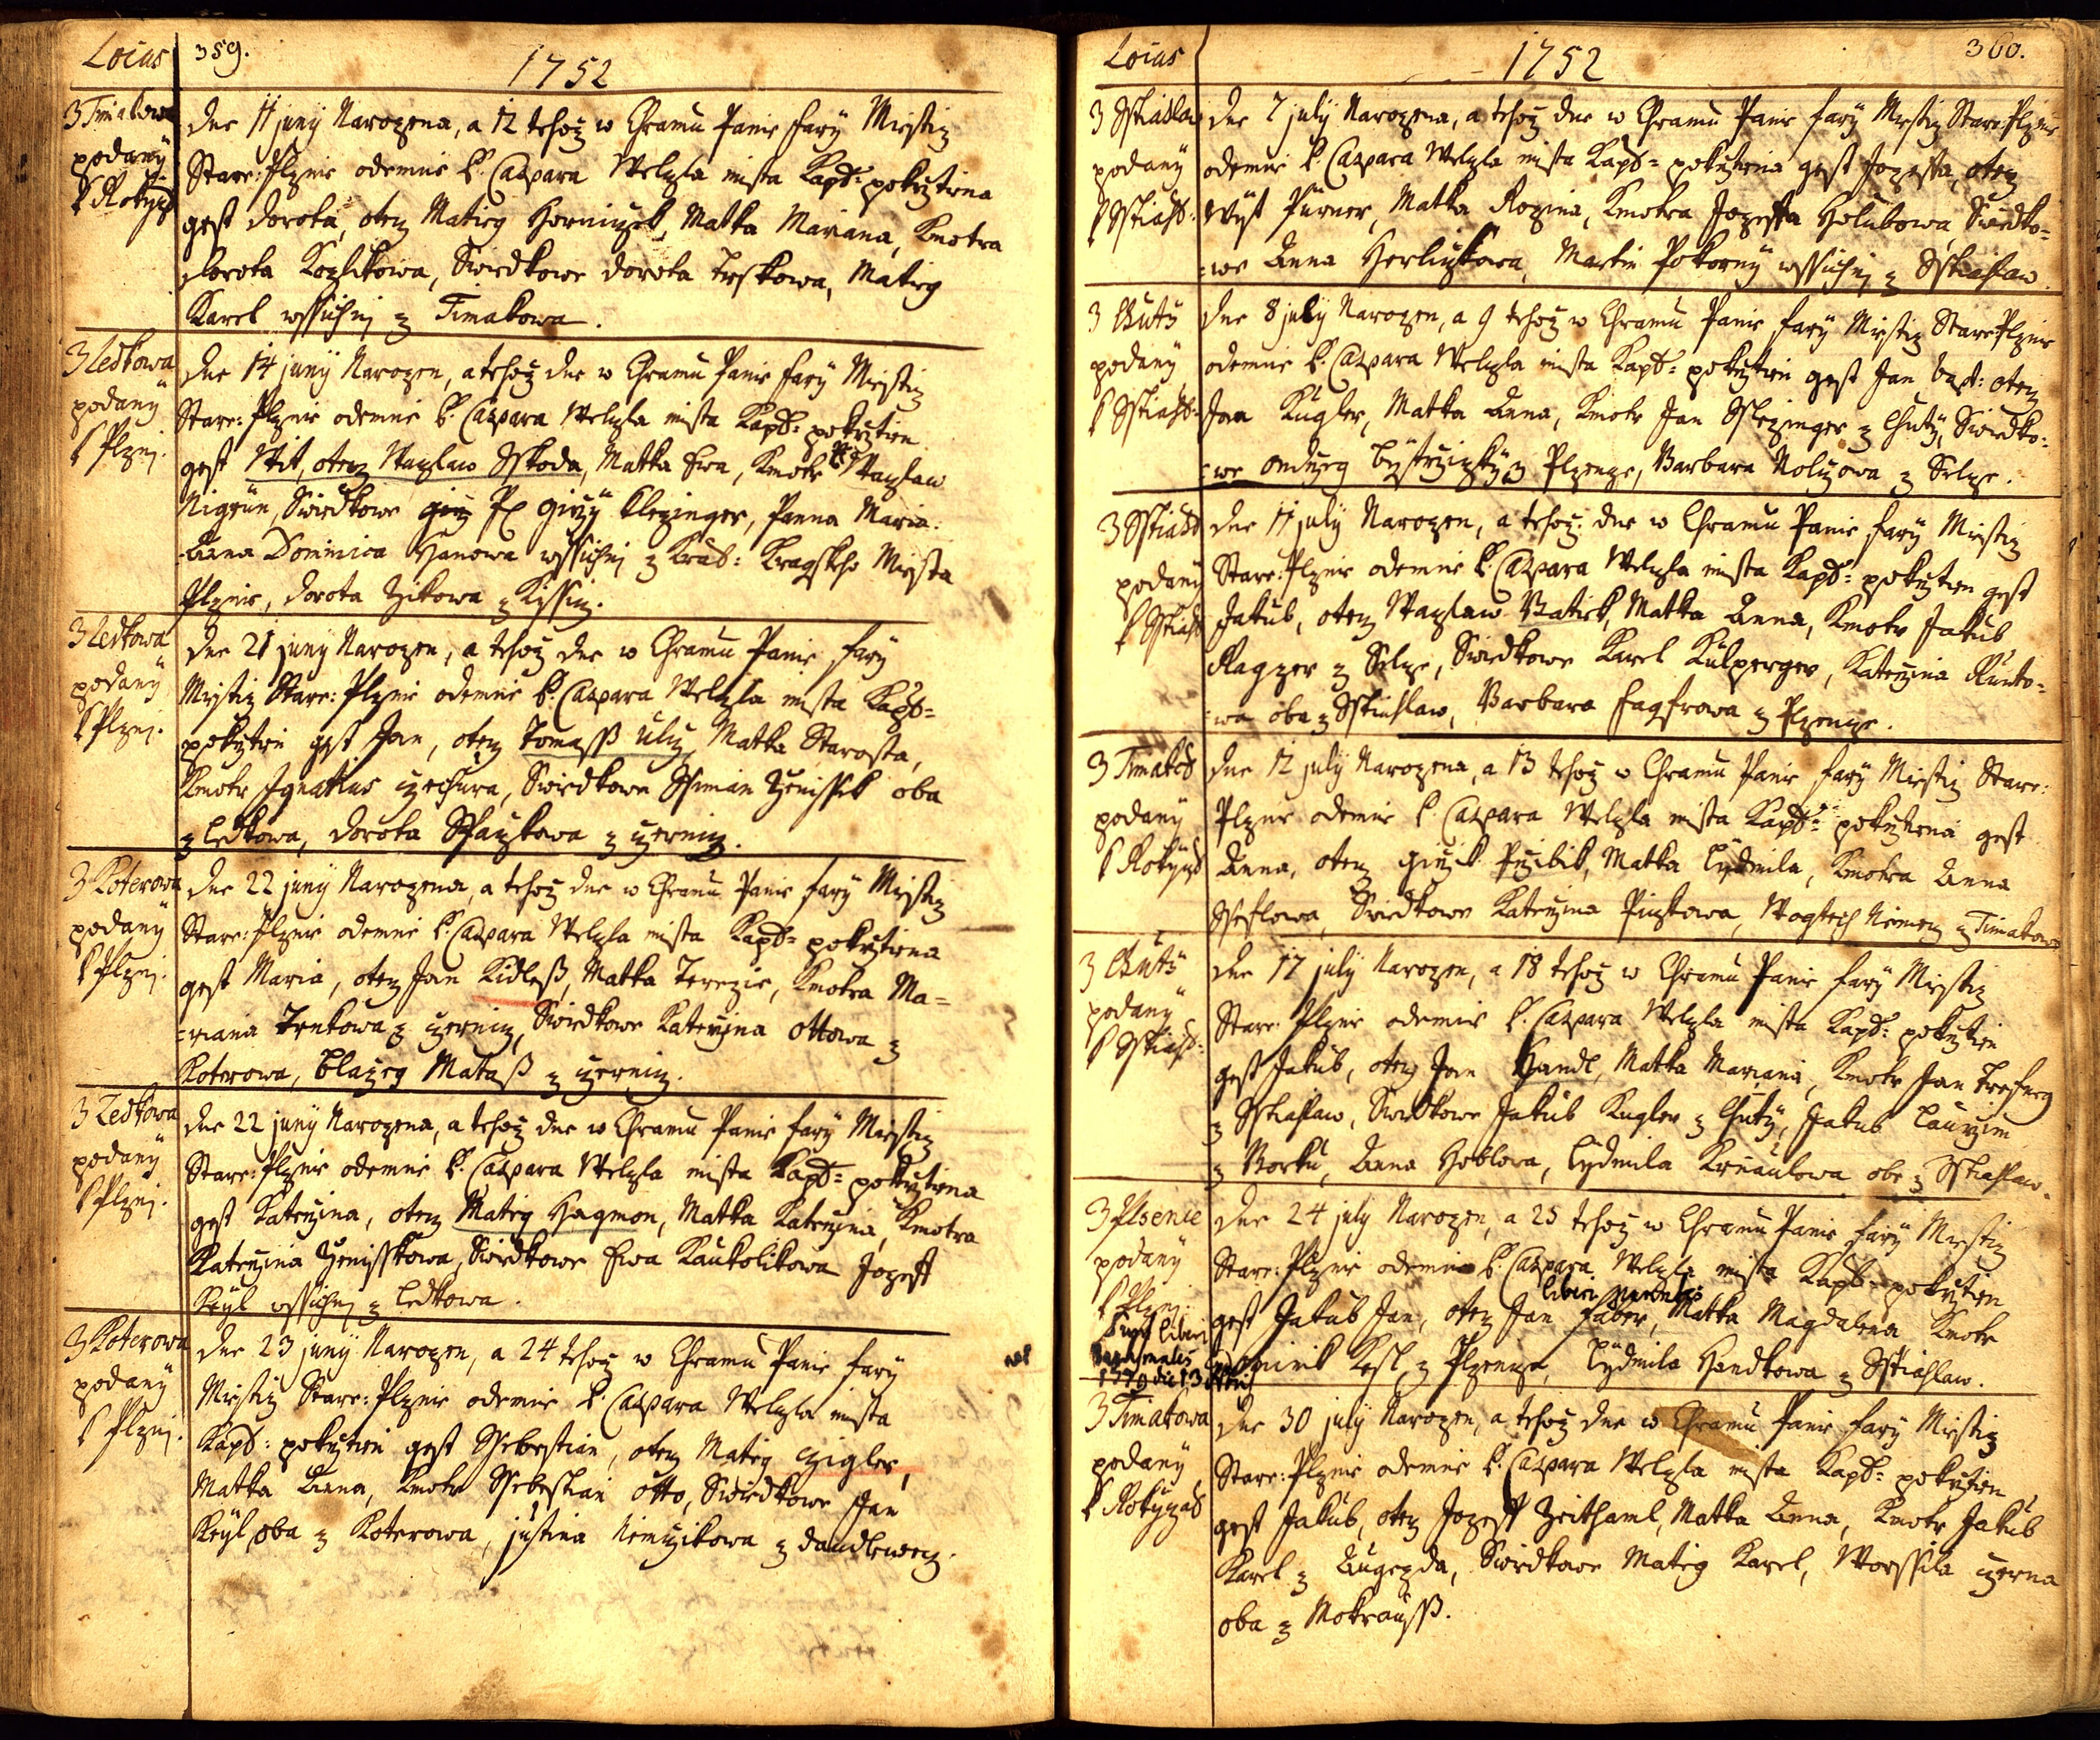 Locus 359.
1752
Z Timakowa
podaný
k Rokycz
dne 11 juny Narozena, a 12 tehoz w Chramu Panie fary Miestiz
Stare: Plznie odemnie P. Caspara Welzla mista Kapl: pokrztiena
gest Dorota, otecz Matieg Horniczek, Matka Mariana, Kmotra
Dorota Kozlikowa, Swiedkowe Dorota Jeskowa, Matieg
Karel wssichnj z Timakowa.
Z Ledkowa
podaný
k Plznj.
dne 14 juny Narozen, a tehoz dne w Chramu Panie fary Miestiz
Stare: Plznie odemnie P. Caspara Welzla mista Kapl: pokrztien
gest Wit, otecz Waczlaw Sskoda, Matka Ewa, Kmotr Waczlaw
Nigrün, Swiedkowe Giržý Klezinger, Panna Maria
Anna Dominica Hanowa wssichnj z Kral: Kragskeho Miesta
Plznie, Dorota Zikowa z Kissicz.
Z Ledkowa
podaný
k Plznj.
dne 21 juny Narozen, a tehoz dne w Chramu Panie fary
Miestiz Stare: Plznie odemnie P. Caspara Welzla mista Kapl=
pokrztien gest Jan, otecz Tomass Uliz, Matka Starosta,
Kmotr Ignatius Czechura, Swiedkowe Ssimian Zenissek oba
z Ledkowa, Dorota Sskauzkowa z Czernicz.
Z Koterowa
podaný
k Plznj.
dne 22 juny Narozena, a tehoz dne w Chramu Panie fary Miestiz
Stare: Plznie odemnie P. Caspara Welzla mista Kapl= pokrztiena
gest Maria, otecz Jan Kidless, Matka Terezie, Kmotra Ma=
=riana Trnkowa z Czernicz, Swiedkowe Katerzina Ottowa z
Koterowa, Blazeg Matass z Czernicz.
Z Ledkowa
podaný
k Plznj.
dne 22 juny Narozena, a tehoz dne w Chramu Panie fary Miestiz
Stare: Plznie odemnie P. Caspara Welzla mista Kapl= pokrztiena
gest Katerzina, otecz Matieg Hagmon, Matka Katerzina, Kmotra
Katerzina Zenisskowa, Swiedkowe Ewa Kaukolikowa Jozeff
Keyl wssichnj z Ledkowa.
Z Koterowa
podaný
k Plznj.
dne 23 juny Narozen, a 24 tehoz w Chramu Panie fary
Miestiz Stare: Plznie odemnie P. Caspara Welzla mista
Kapl: pokrztien gest Ssebestian, otecz Matieg Czigler,
Matka Anna, Kmotr Ssebestian Otto, Swiedkowe Jan
Keyl oba z Koterowa, Justina Niemczikowa z Daudlewecz.
Locus
1752
360.
Z Sstiahlaw
podaný
k Sstiahl:
dne 7 july Narozena, a tehoz dne w Chramu Panie fary Miestiz Stare Plznie
odemnie P. Caspara Welzla mista Kapl= pokrztiena gest Jozeffa, otecz
Wyt Pürner, Matka Rozina, Kmotra Jozeffa Holubowa, Swiedko=
=we Anna Herliczkowa, Martin Pokorný wssichnj z Sstiahlaw.
Z Chutý
podaný
k Sstiahl:
dne 8 july Narozen, a 9 tehoz w Chramu Panie fary Miestiz Stare Plznie
odemnie P. Caspara Welzla mista Kapl= pokrztien gest Jan bapt: otecz
Jan Kugler, Matka Anna, Kmotr Jan Sslezinger z Chutý, Swiedko=
=we Ondrzeg Bistrziczký z Plzencze, Barbara Noliczowa z Selcze.
Z Sstiahl
podaný
k Sstiahl
dne 11 july Narozen, a tehoz dne w Chramu Panie fary Miestiz
Stare: Plznie odemnie P. Caspara Welzla mista Kapl= pokrztien gest
Jakub, otecz Waczlaw Batiek, Matka Anna, Kmotr Jakub
Ragzer z Selcze, Swiedkowe Karel Külperger, Katerzina Runto=
=wa oba z Sstiahlaw, Barbara Fagfrowa z Plzencze.
Z Timakd
podaný
k Rokyczd
dne 12 july Narozena, a 13 tehoz w Chramu Panie fary Miestiz Stare:
Plznie odemnie P. Caspara Welzla mista Kapl= pokrztiena gest
Anna, otecz Girzik Przibik, Matka Lydmila, Kmotra Anna
Ssesslowa, Swiedkowe Katerzina Pinzkowa, Wogtiech Niemecz z Timakowa
Z Chutý
podaný
k Sstiahl:
dne 17 july Narozen, a 18 tehoz w Chramu Panie fary Miestiz
Stare Plznie odemnie P. Caspara Welzla mista Kapl: pokrztien
gest Jakub, otecz Jan Handl, Matka Mariana, Kmotr Jan
z Sstiahlaw, Swiedkowe Jakub Kugler z Chutý, Jakub Laurzim
z Borku, Anna Hoblowa, Lydmila Krnaulowa obe z Sstiahlaw.
Z Plsence
podaný
k Plznj.
dne 24 july Narozen, a 25 tehoz w Chramu Panie fary Miestiz
Stare: Plznie odemnie P. Caspara Welzla mista Kapl= pokrztien
gest Jakub Jan, otecz Jan Faber, Matka Magdalena Kmotr
Dominik Kesl z Plzencze, Lydmila Handkowa z Sstiahlaw.
Z Timakowa
podaný
k Rokyczad
dne 30 july Narozen, a tehoz dne w Chramu Panie fary Miestiz
Stare: Plznie odemnie P. Caspara Welzla mista Kapl= pokrztien
gest Jakub, otecz Jozeff Zeithaml, Matka Anna, Kmotr Jakub
Karel z Augezda, Swiedkowe Matieg Karel, Worssila Czerna
oba z Mokrauss.